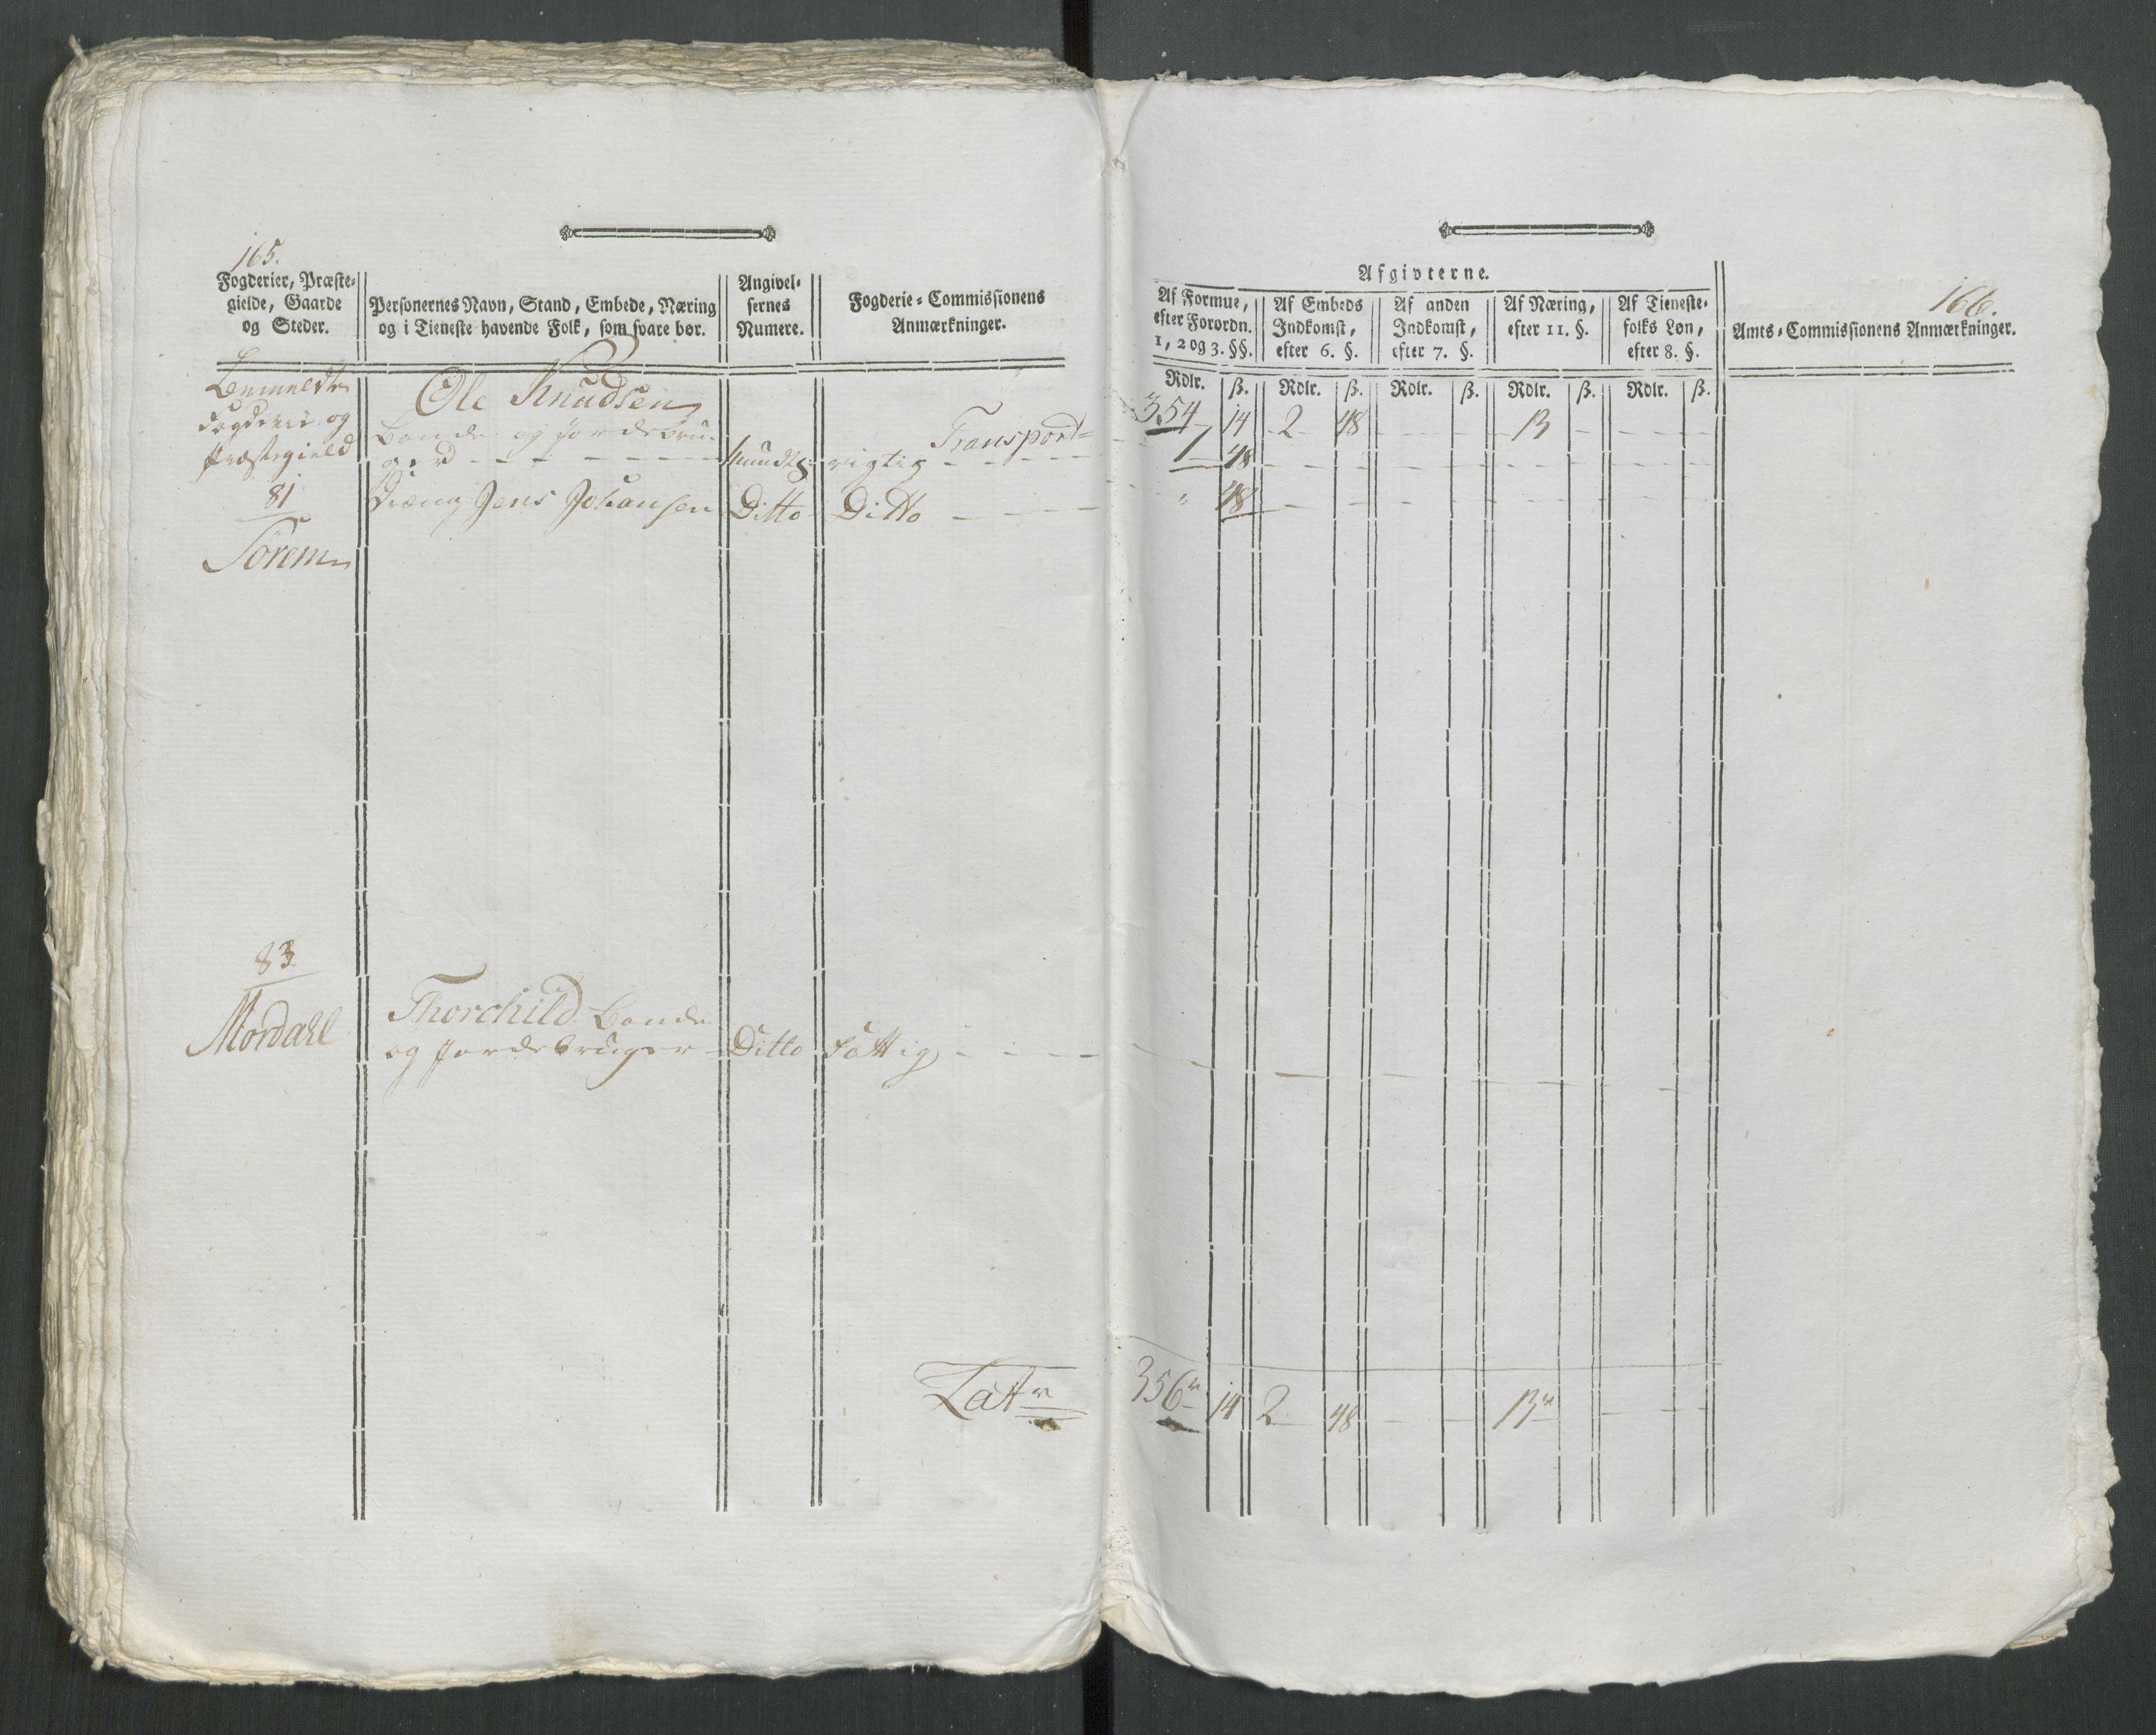 165.
Fogderier, Præste-
gielde, Gaarde
og Steder.
Personernes Navn, Stand, Embede, Næring
og i Tieneste havende Folk, som svare bør.
Angivel-
sernes
Numere.
Fogderie-Commissionens
Anmærkninger.
Bemeldte
Fogderie og
Præstegield
81
Torem
Ole Knudsen
Bonde og Jordebru-
ger - - - - - - mundtl: rigtig - - - -
Transport
Dreng Jens Johansen Ditto Ditto - - -
83
Mordahl
Thorchild Bonde
og Jordebruger - Ditto fattig - - - -
Latr
166.
Afgivterne.
Af Formue,
efter Forordn.
1, 2 og 3. §§.
Af Embeds
Indkomst,
efter 6. §.
Af anden
Indkomst,
efter 7. §.
Af Næring,
efter 11. §.
Af Tieneste-
folks Løn,
efter 8. §.
Amts-Commissionens Anmærkninger.
Rdlr. ß. Rdlr. ß. Rdlr. ß. Rdlr. ß. Rdlr. ß.
354 14 2 48 - - 13 - - -
1 48 - - - - - - - -
" 48 - - - - - - - -
356 14 2 48 - - 13 - - -